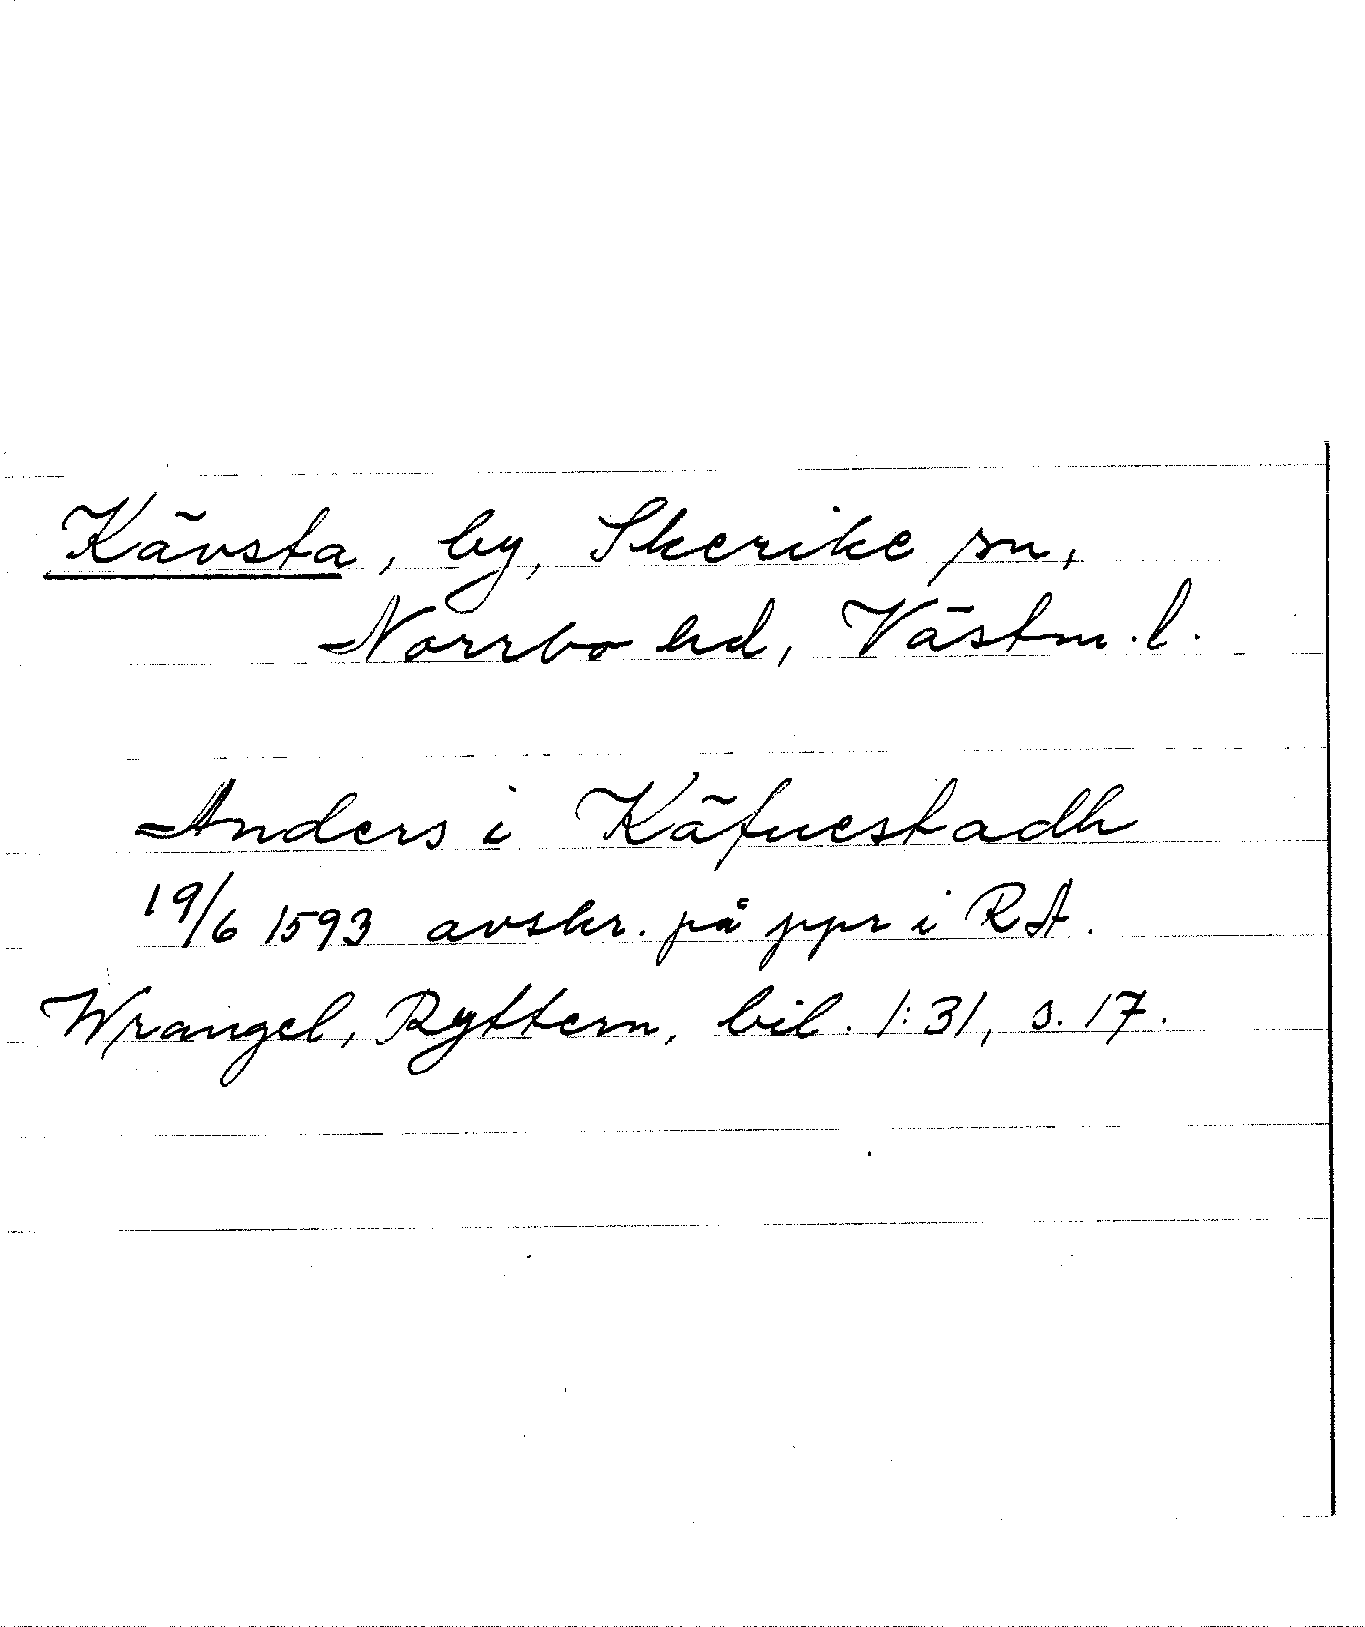 Kävsta, by, Skerike sn,
Norrbo hd, Västm.l.
Anders i Käfuestadh
19/6 1593 avskr. på ppr i RA.
Wrangel, Ryttern, bil. 1:31, s. 17.